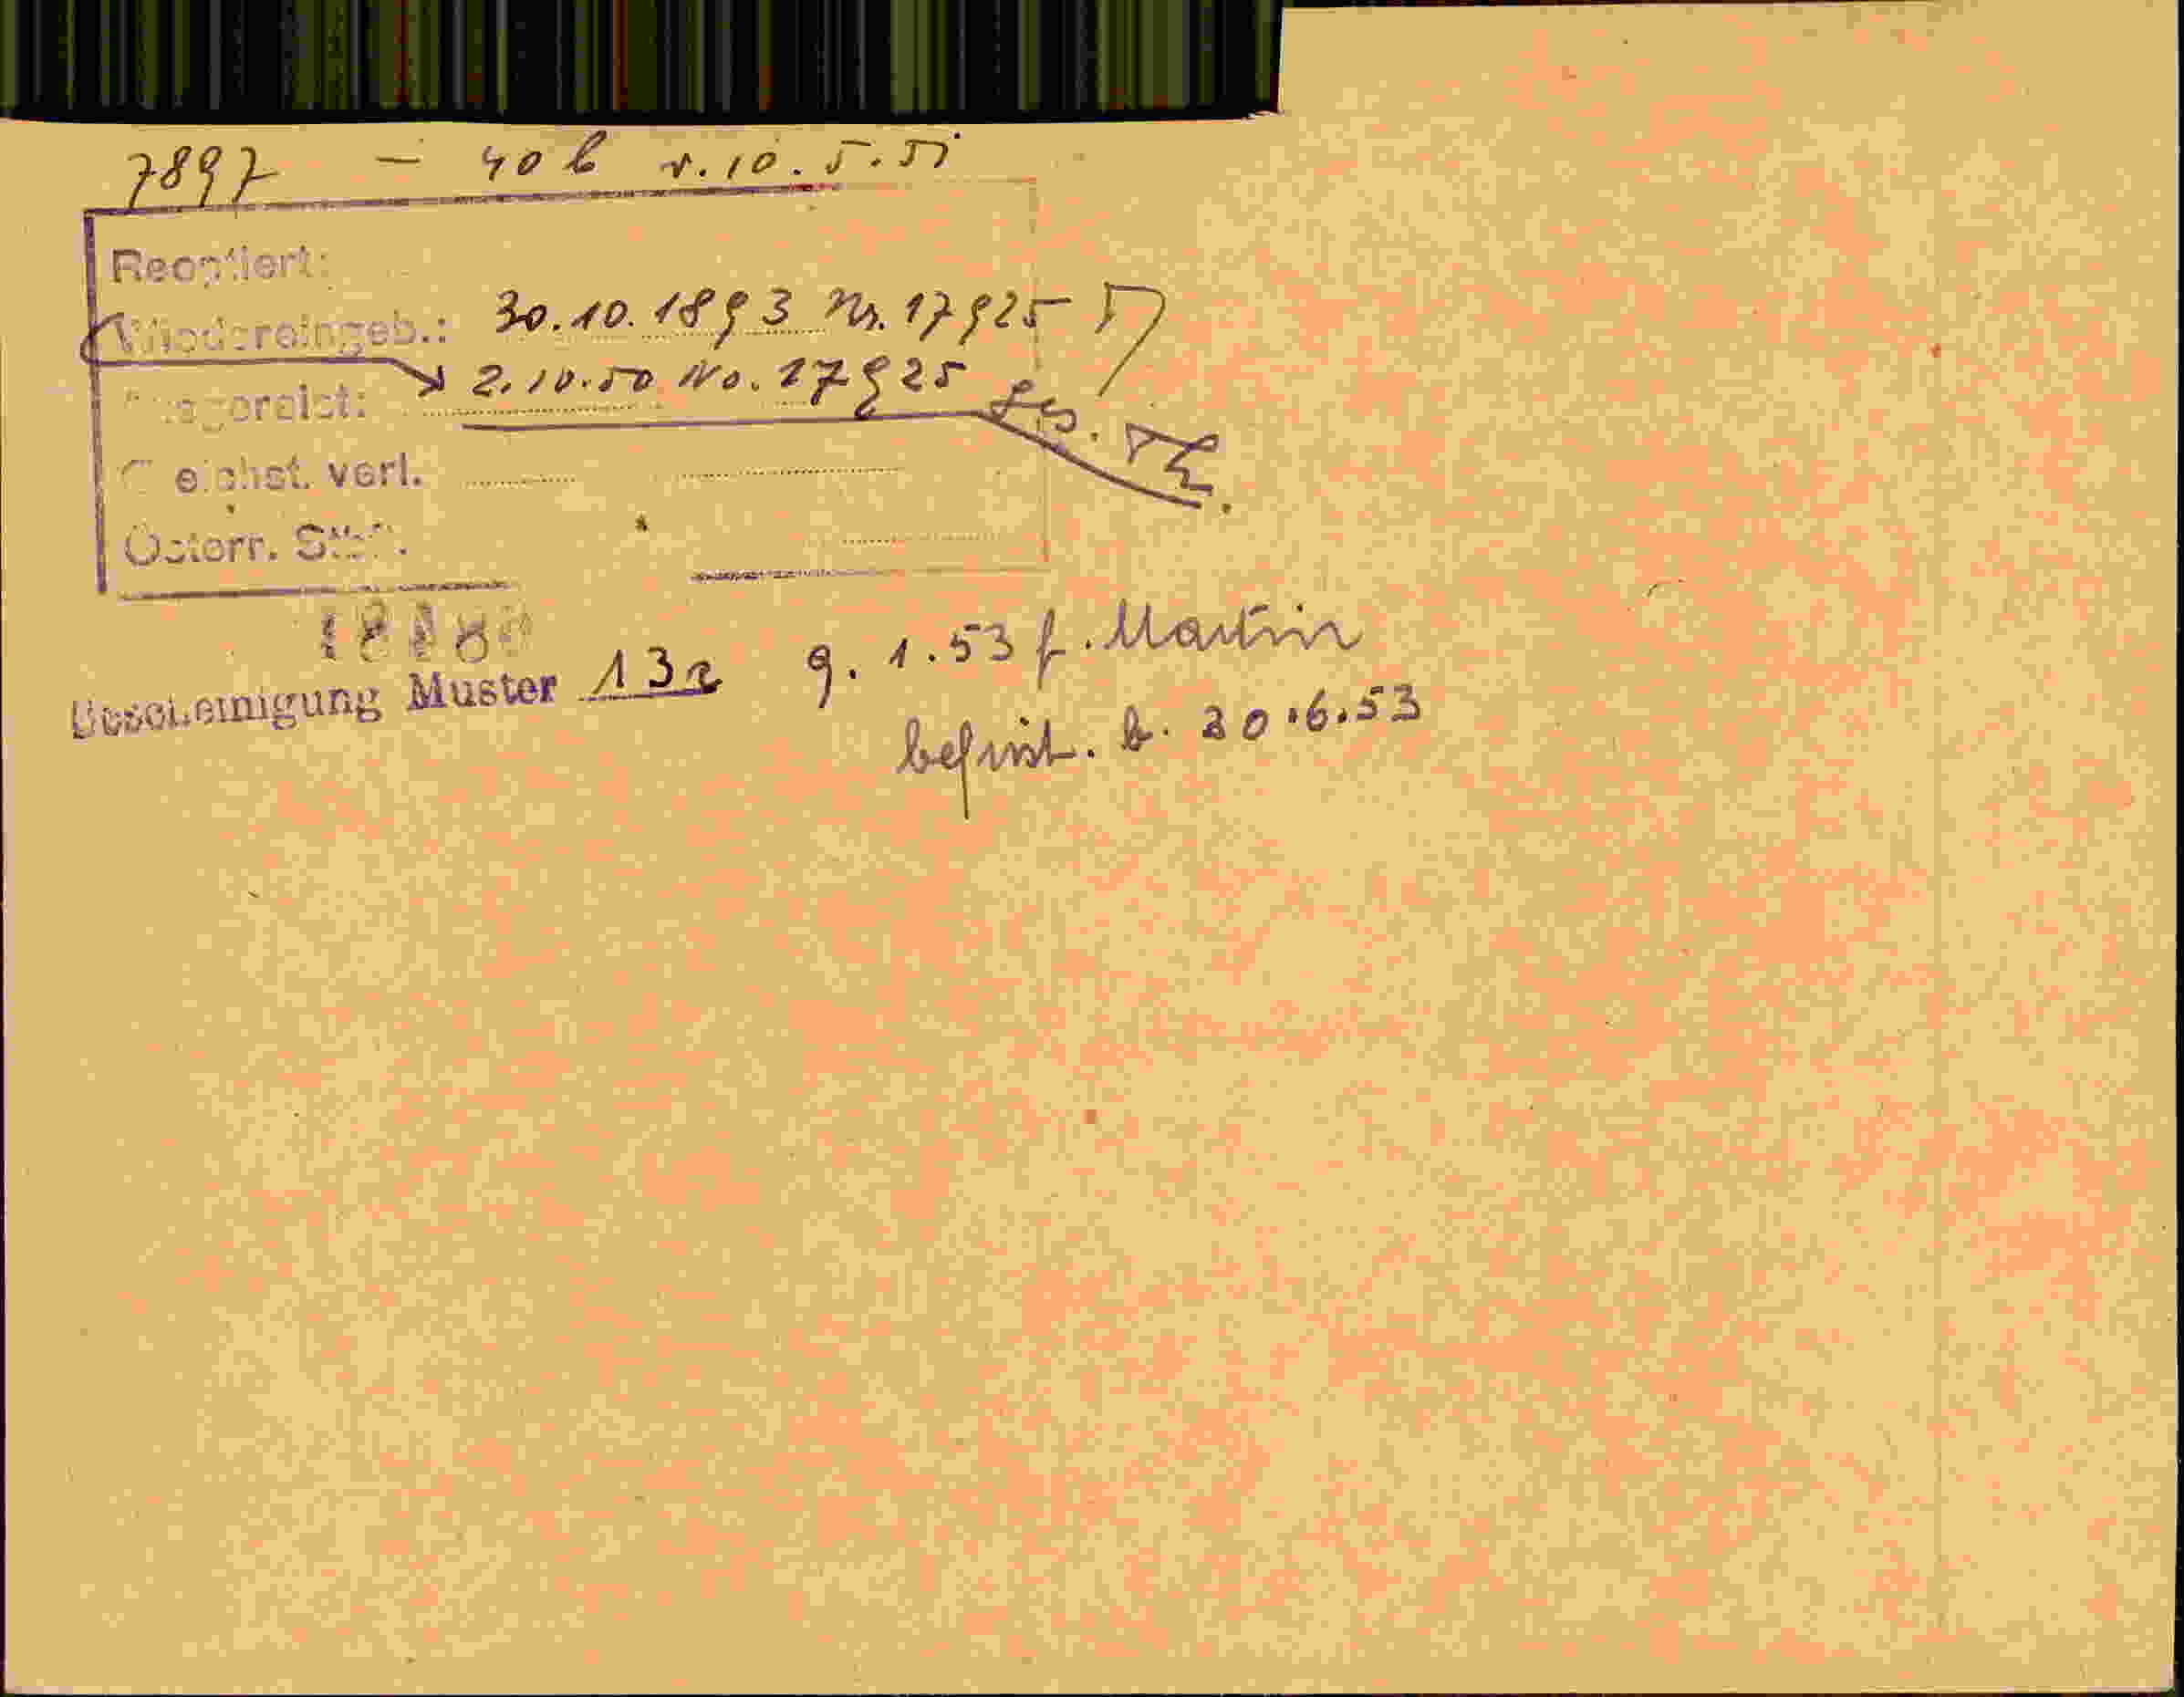 7897 – 40 b v. 10. 5. 51
Reoptiert:
Wiedereingeb.: 30.10.1893 Nr. 17925
Ausgereist: 2.10.50 No. 17925 ges.
Reichst. verl.
Österr.
Bescheinigung Muster 13a 9. 1. 53 f. Martin
befrist. b. 30.6.53